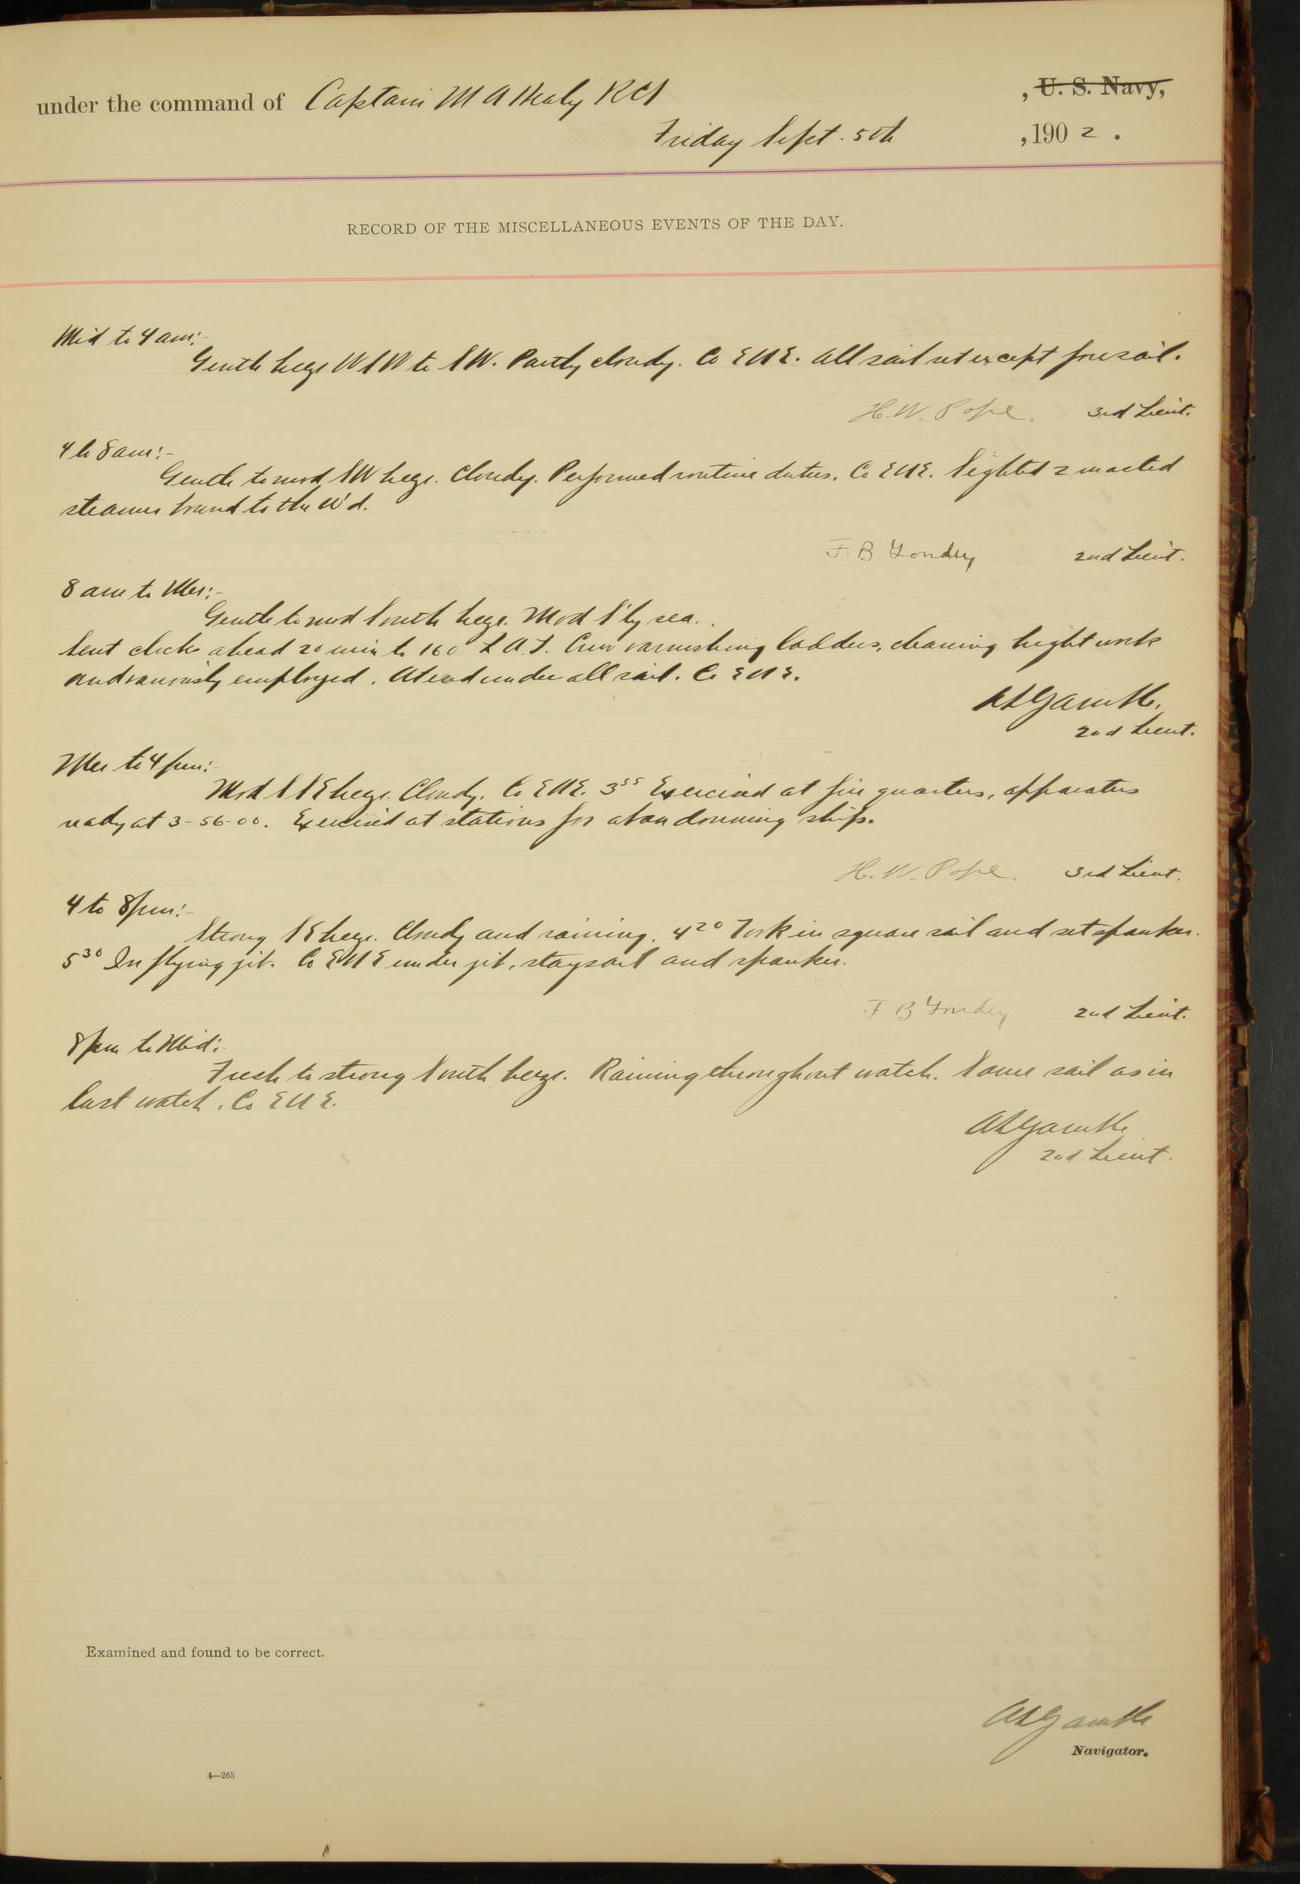 under the command of Captain M A Healy RCS , U. S. Navy,
Friday Sept. 5th , 190 2 .
RECORD OF THE MISCELLANEOUS EVENTS OF THE DAY.
Mid to 4 am:-
Gentle breeze WSW to SW. Partly cloudy. Co E N E. All sail set except foresail.
H. W. Pope. 3rd Lieut.
4 to 8 am:-
Gentle to mod SW breeze. Cloudy. Performed routine duties. Co E N E. Sighted 2 masted
steamer bound to the W'd.
F. B 2nd Lieut.
8 am to Mer:-
Gentle to mod South breeze. Mod S'ly sea.
Sent clock ahead 20 min to 160° L.A.T. Crew varnishing ladders, cleaning bright work
and variously employed. Ahead under all sail. Co E N E.
A L Gamble.
2nd Lieut.
Mer to 4 pm:-
Mod S S E breeze. Cloudy. Co E N E. 3 55 Exercised at fire quarters, apparatus
ready at 3-56-00. Exercised at stations for abandonning ship.
H. W. Pope. 3rd Lieut.
4 to 8 pm:-
Strong S E breeze. Cloudy and raining. 4 20 Took in square sail and set spanker.
5 30 In flying jib. Co E N E under jib, staysail and spanker.
F B 2nd Lieut.
8 pm to Mid:-
Fresh to strong South breeze. Raining throughout watch. Same sail as in
last watch. Co E N E.
A L Gamble
2nd Lieut.
Examined and found to be correct.
A L Gamble
Navigator.
4—265